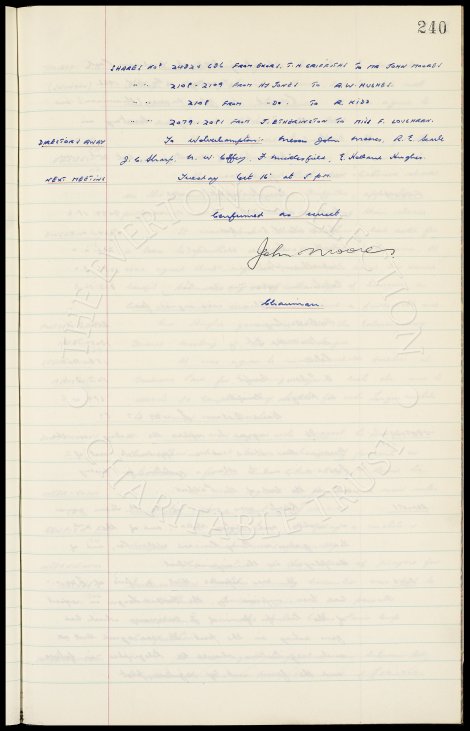 240
SHARES Nos 24824 636 FROM EXORS. T. H. GRIFFITHS TO MR JOHN MOORES
" " 2108 - 2109 FROM HY JONES TO A.W. HUGHES.
" " 2108 FROM - DO - TO R. KIDD
" " 2079 - 2081 FROM J. ETHERINGTON TO MISS F. LOUGHRAN.
DIRECTORS AWAY To Wolverhampton: Messrs John Moores, R. E. Searle
J. C. Sharp, N. W. Coffey, F. Micklesfield, E. Holland Hughes.
NEXT MEETING Tuesday Oct 16 at 5 pm.
Confirmed as correct
John Moores.
Chairman.
THE EVERTON COLLECTION
CHARITABLE TRUST